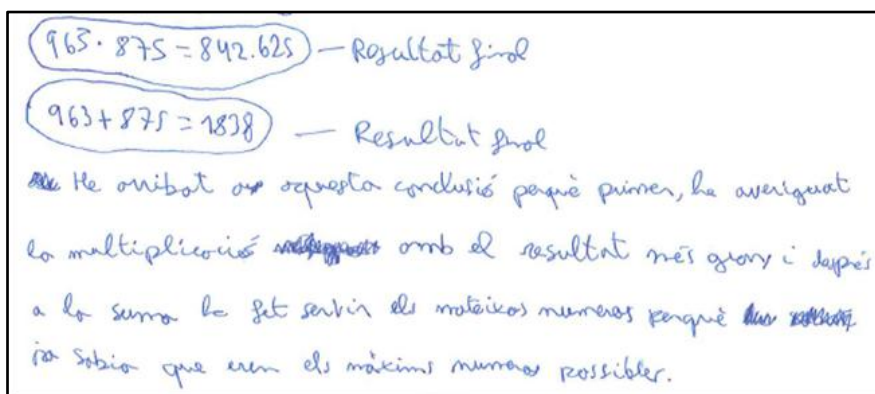 963 · 875 = 842.625 — Resultat final
963 + 875 = 1838 — Resultat final
He arribat a aquesta conclusió perquè primer, he averiguat
la multiplicació amb el resultat més gran i després
a la suma he fet servir els mateixos numeros perquè
ja sabia que eren els màxims numeros possibles.